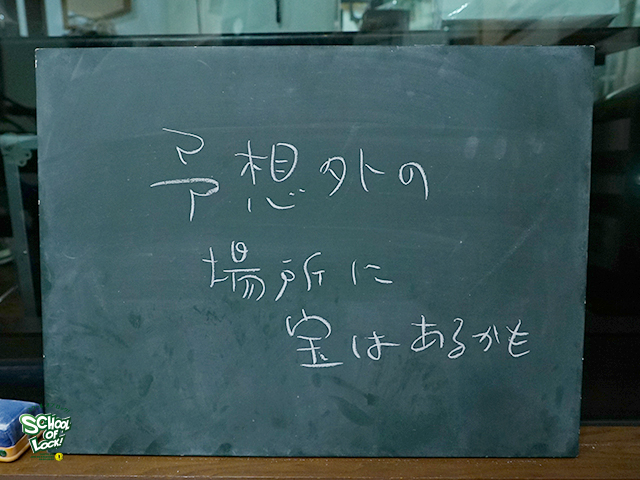 予想外の
場所に
宝はあるかも
SCHOOL
OF
LOCK!